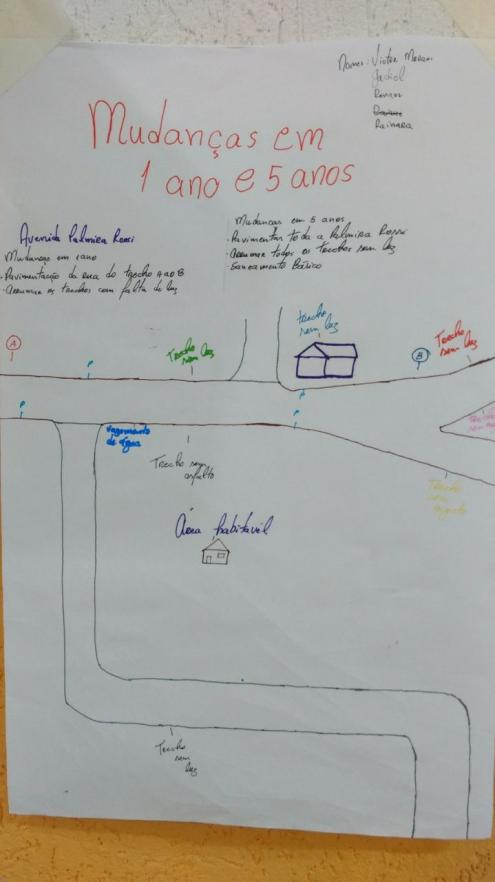 Nomes: Victor
Renan
Rainara
Mudanças em
1 ano e 5 anos
Avenida Palmira Rossi
Mudanças em 1 ano
- Pavimentação da rua do trecho A ao B
- Arrumar os trechos com falta de luz
Mudanças em 5 anos
- Pavimentar toda a Palmira Rossi
- Arrumar todos os trechos sem luz
- Saneamento Básico
A
P
Trecho
sem luz
trecho
sem luz
B
Trecho
sem luz
P
vazamento
de água
P
Trecho sem
asfalto
Trecho
sem
Trecho
sem
esgoto
Área habitável
Trecho
sem
luz